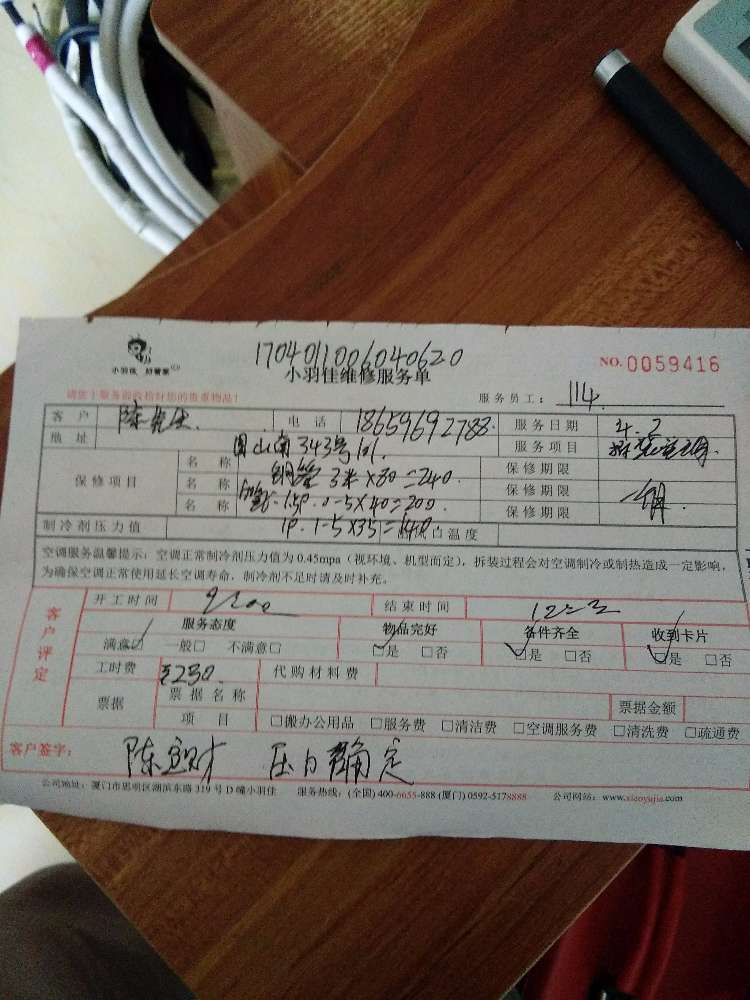 17040110060406​20
小羽佳 好管家
小羽佳维修服务单 NO.0059416
请您于服务前收拾好您的贵重物品! 服务员工: 114
客户 陈先生 电话 18659692788 服务日期 4.2
地址 343号 服务项目
保修项目 名称 铜管 3米×80=240 保修期限
名称 1.5P 0-5×40=200 保修期限
名称 1P 1-5×35=140 保修期限
制冷剂压力值 温度
空调服务温馨提示:空调正常制冷剂压力值为 0.45mpa(视环境、机型而定),拆装过程会对空调制冷或制热造成一定影响,
为确保空调正常使用延长空调寿命,制冷剂不足时请及时补充。
客户评定 开工时间 9:00 结束时间
服务态度 物品完好 备件齐全 收到卡片
满意☑ 一般□ 不满意□ ☑是 □否 ☑是 □否 ☑是 □否
工时费 230 代购材料费
票据 票据名称 票据金额
项目 □搬办公用品 □服务费 □清洁费 □空调服务费 □清洗费 □疏通费
客户签字: 陈 确定
公司地址:厦门市思明区湖滨东路 319 号 D 幢小羽佳 服务热线:(全国) 400-6655-888 (厦门) 0592-5178888 公司网站:www.xiaoyujia.com